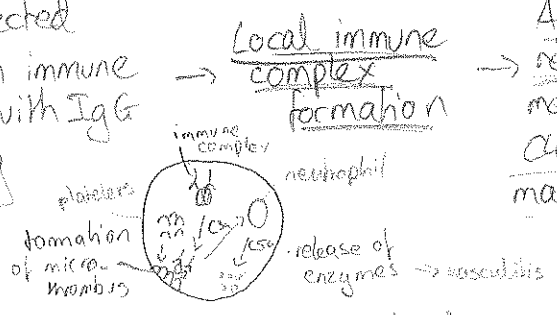 immune
with IgG
→ Local immune
complex
formation →
immune
complex
neutrophil
platelets
formation
of micro-
thrombus
C5a
· release of
enzymes → vasculitis